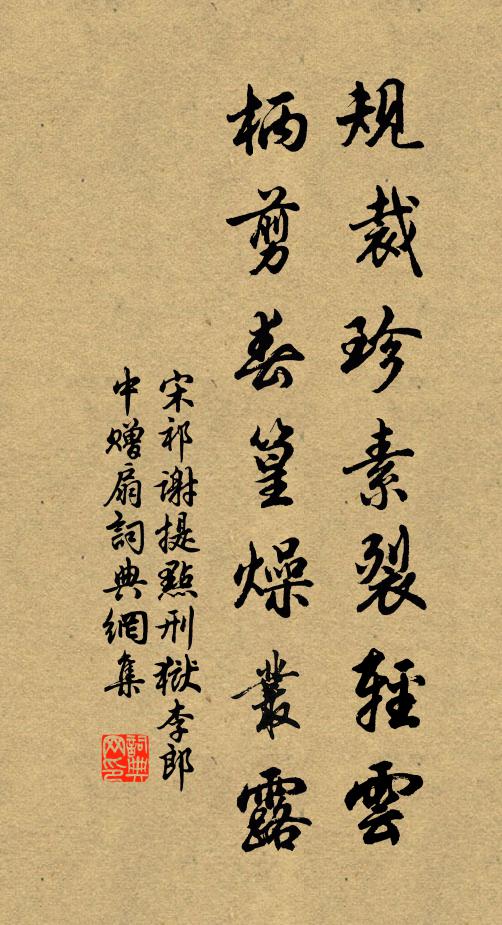 規裁珍素裂輕雲
柄剪春篁燥叢露
宋祁謝提點刑獄李郎
中贈扇詞典網集
詞典網印